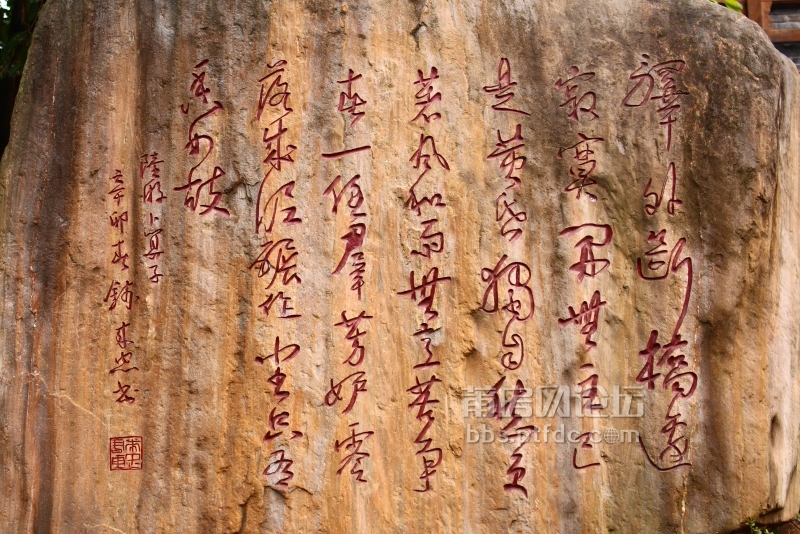 驛外断橋邊
寂寞開無主已
是黄昏獨自愁更
著风和雨無意苦争
春一任群芳妒零
落成泥碾作尘只有
香如故
陸游卜算子
辛卯春 书
莆房网论坛
bbs.ptfdc.com